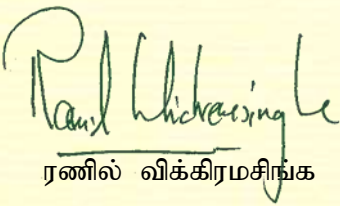 Ranil Wickremesinghe
ரணில் விக்கிரமசிங்க